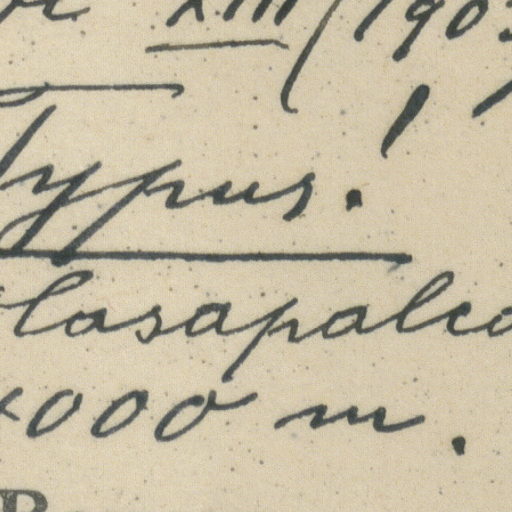 XIII/190
Typus!
Casapalca
4000 m.